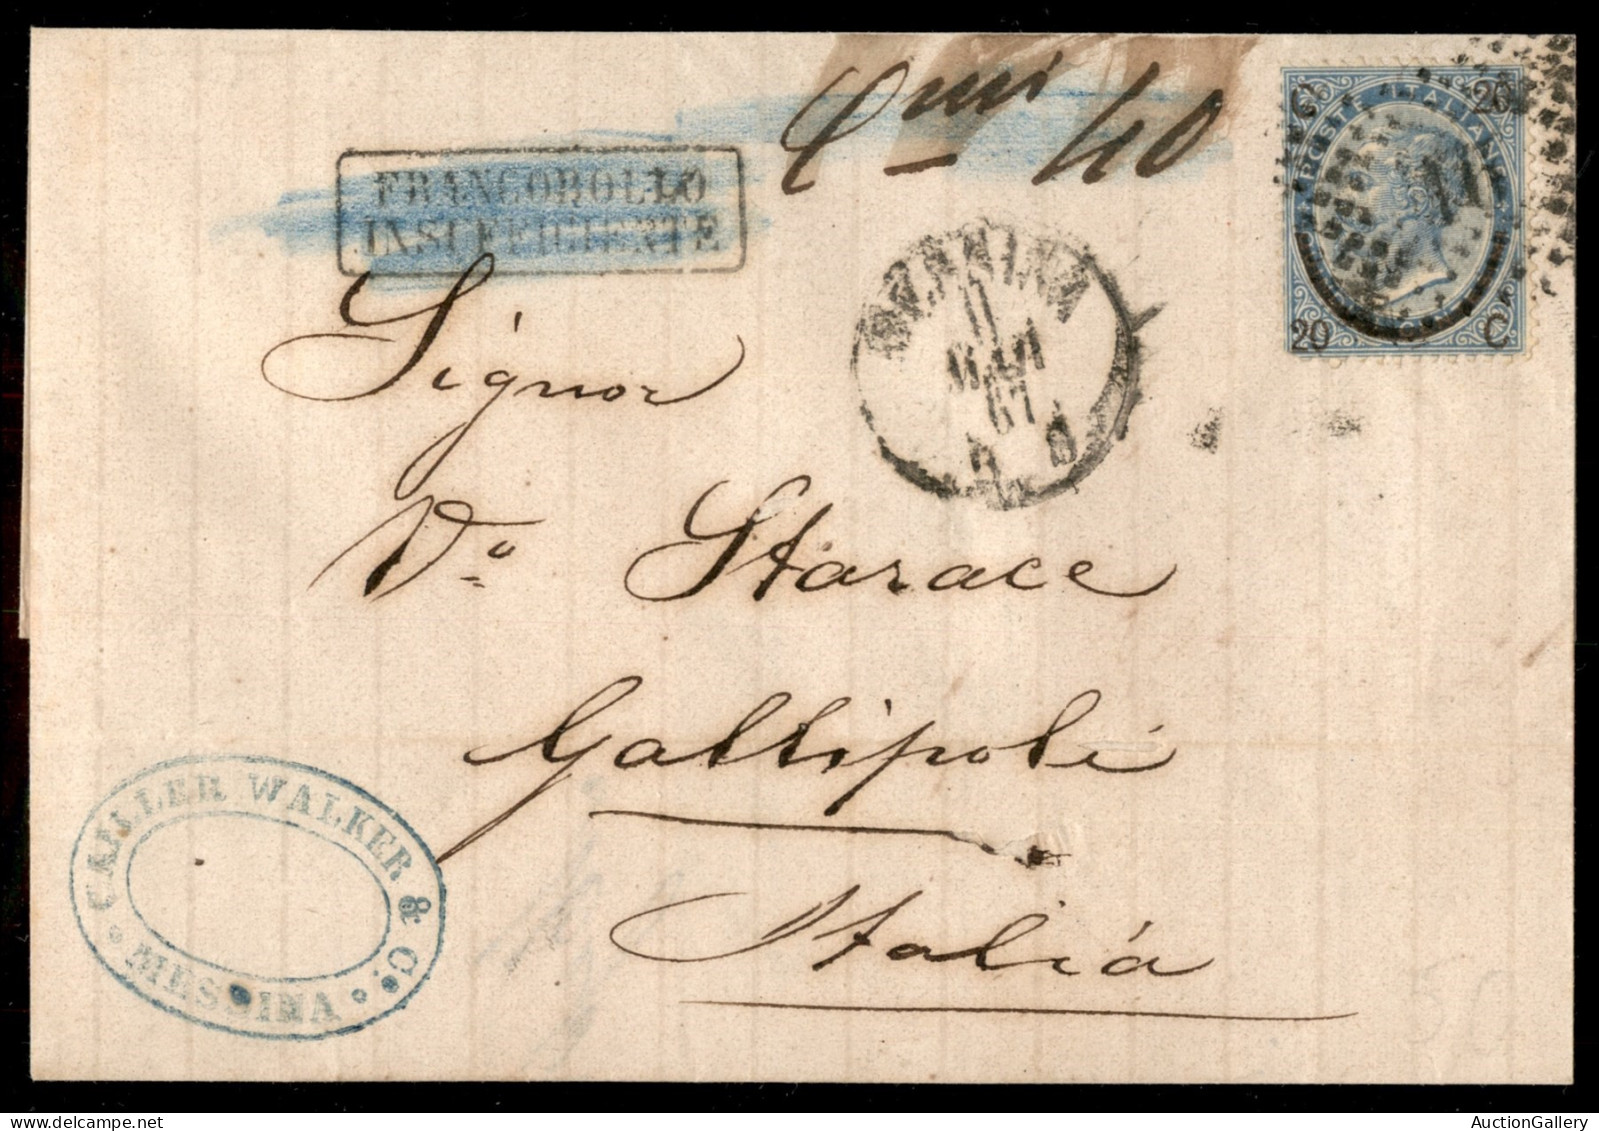 FRANCOBOLLO
INSUFFICIENTE
40
C 20
POSTE ITALIANE
20 C
MESSINA
11
MAG
67
Signor
Vo. Starace
Gallipoli
Italia
CAILLER WALKER & Co.
MESSINA
AuctionGallery